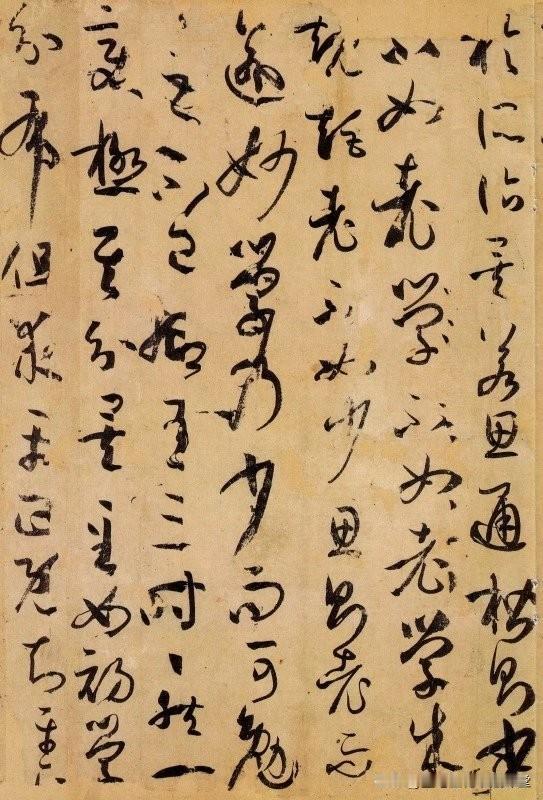 於所詣矣若思通楷則少
不如老學不如老學成
規矩老不如少思則老而
逾妙學乃少而可勉
〻之不已抑有三時〻然一
變極其分矣至如初學
分布但求平正既知平